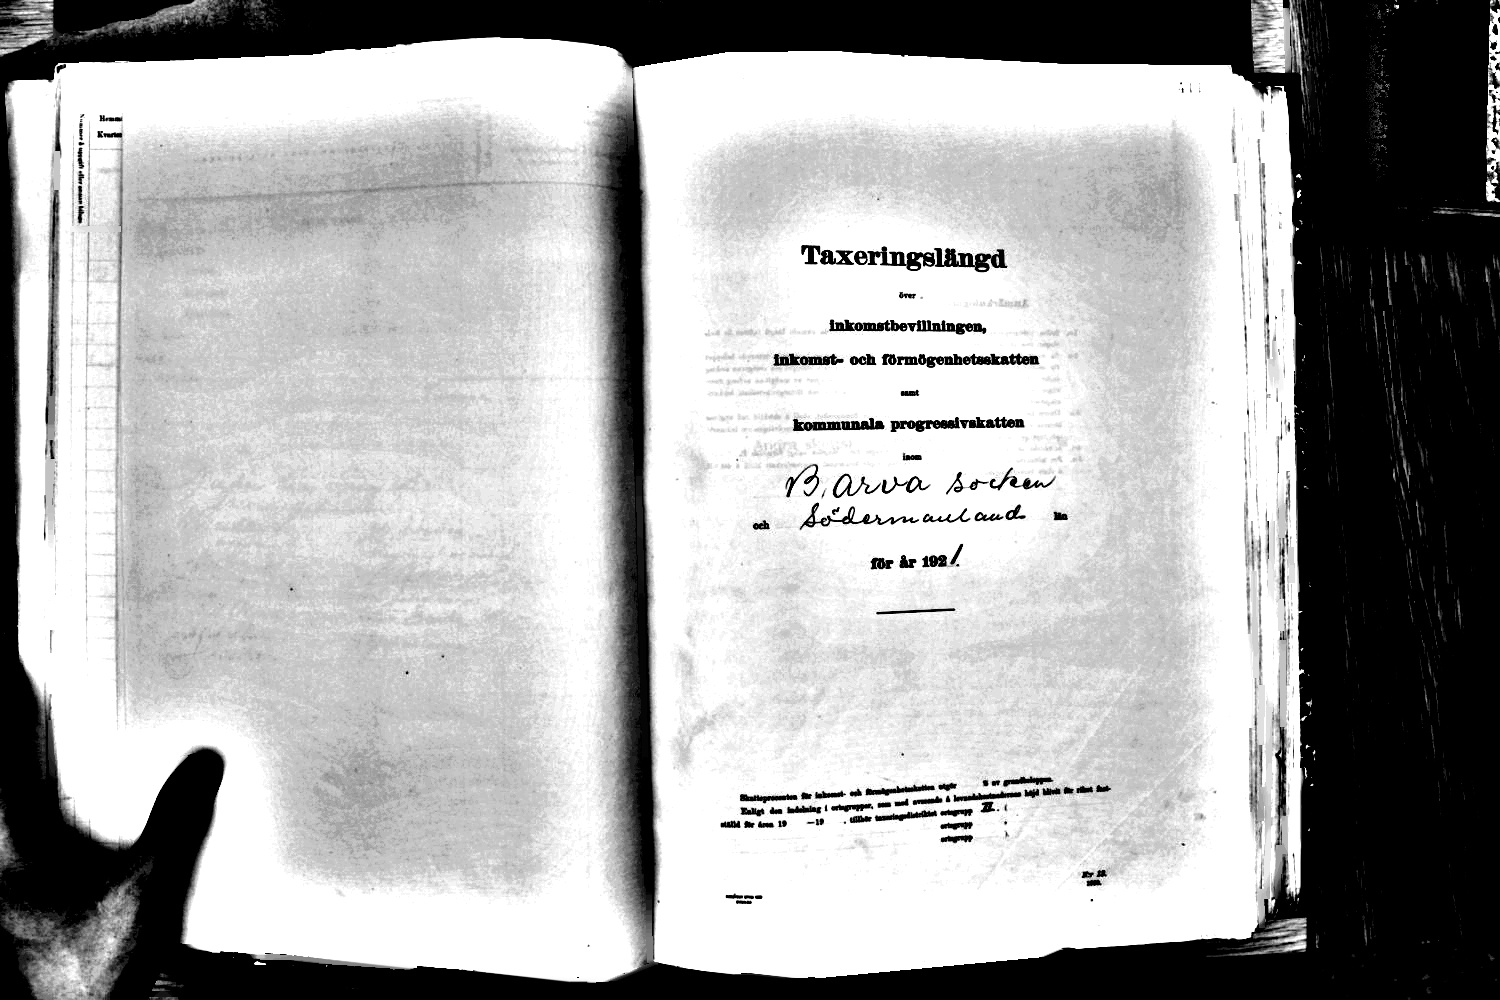 Hemma
Kvarter
Nummer å uppgift eller annan bilaga
411
Taxeringslängd
över
inkomstbevillningen,
inkomst- och förmögenhetsskatten
samt
kommunala progressivskatten
inom
Bärva socken
och Södermanlands län
för år 1921.
Skatteprocenten för inkomst- och förmögenhetsskatten utgör % av grundbeloppen.
Enligt den indelning i ortsgrupper, som med avseende å levnadskostnadernas höjd blivit för riket fast-
ställd för åren 19 —19 , tillhör taxeringsdistriktet ortsgrupp II.
ortsgrupp
ortsgrupp